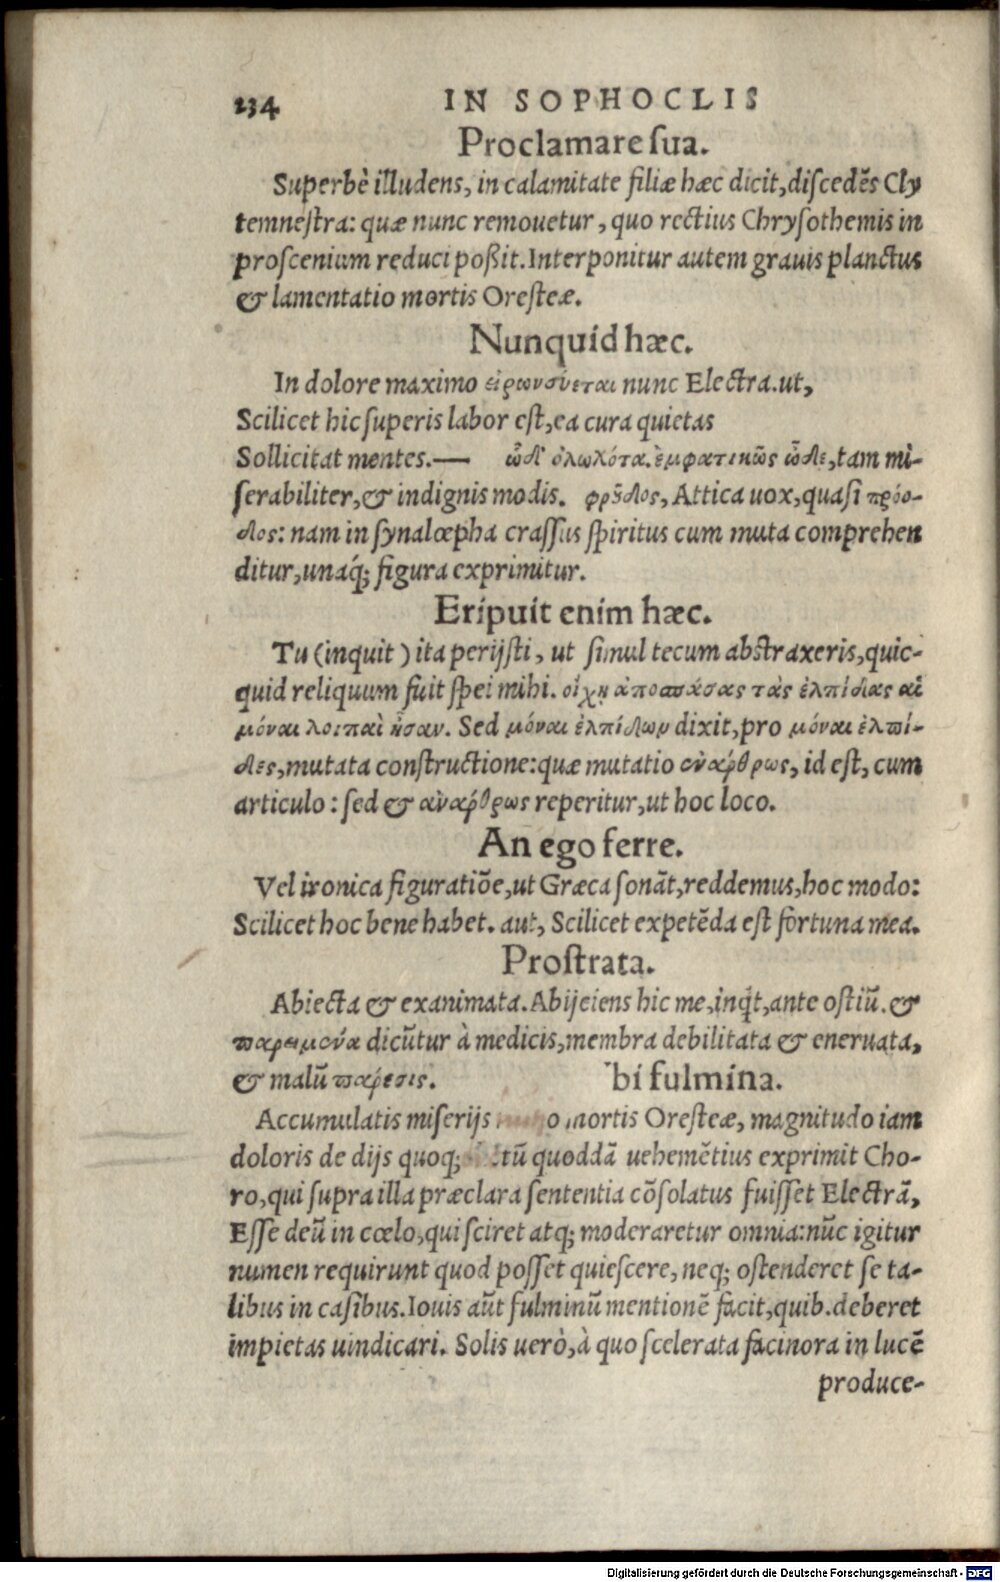 234 IN SOPHOCLIS
Proclamare sua.
Superbè illudens, in calamitate filiæ hæc dicit, discedẽs Cly
temnestra: quæ nunc remouetur, quo rectius Chrysothemis in
proscenium reduci poßit. Interponitur autem grauis planctus
& lamentatio mortis Oresteæ.
Nunquid hæc.
In dolore maximo εἰρωνεύεται nunc Electra. ut,
Scilicet hic superis labor est, ea cura quietas
Sollicitat mentes.— ὧδ' ὀλωλότα. ἐμφατικῶς ὧδε, tam mi-
serabiliter, & indignis modis. φροῦδος, Attica uox, quasi πρόο-
δος: nam in synalœpha crassus spiritus cum muta comprehen
ditur, unaq́; figura exprimitur.
Eripuit enim hæc.
Tu (inquit) ita perijsti, ut simul tecum abstraxeris, quic-
quid reliquum fuit spei mihi. οἴχῃ ἀποσπάσας τὰς ἐλπίδας αἳ
μόναι λοιπαὶ ἦσαν. Sed μόναι ἐλπίδων dixit, pro μόναι ἐλπί-
δες, mutata constructione: quæ mutatio ἐνάρθρως, id est, cum
articulo: sed & ἀνάρθρως reperitur, ut hoc loco.
An ego ferre.
Vel ironica figuratiõe, ut Græca sonãt, reddemus, hoc modo:
Scilicet hoc bene habet. aut, Scilicet expetẽda est fortuna mea.
Prostrata.
Abiecta & exanimata. Abijciens hic me, inq̃t, ante ostiũ. &
παρειμένα dicũtur à medicis, membra debilitata & eneruata,
& malũ πάρεσις. bi fulmina.
Accumulatis miserijs mortis Oresteæ, magnitudo iam
doloris de dijs quoq; tũ quoddã uehemẽtius exprimit Cho-
ro, qui supra illa præclara sententia cõsolatus fuisset Electrã,
Esse deũ in cœlo, qui sciret atq; moderaretur omnia: nũc igitur
numen requirunt quod posset quiescere, neq; ostenderet se ta-
libus in casibus. Iouis aũt fulminũ mentionẽ facit, quib. deberet
impietas uindicari. Solis uerò, à quo scelerata facinora in lucẽ
produce-
Digitalisierung gefördert durch die Deutsche Forschungsgemeinschaft - DFG